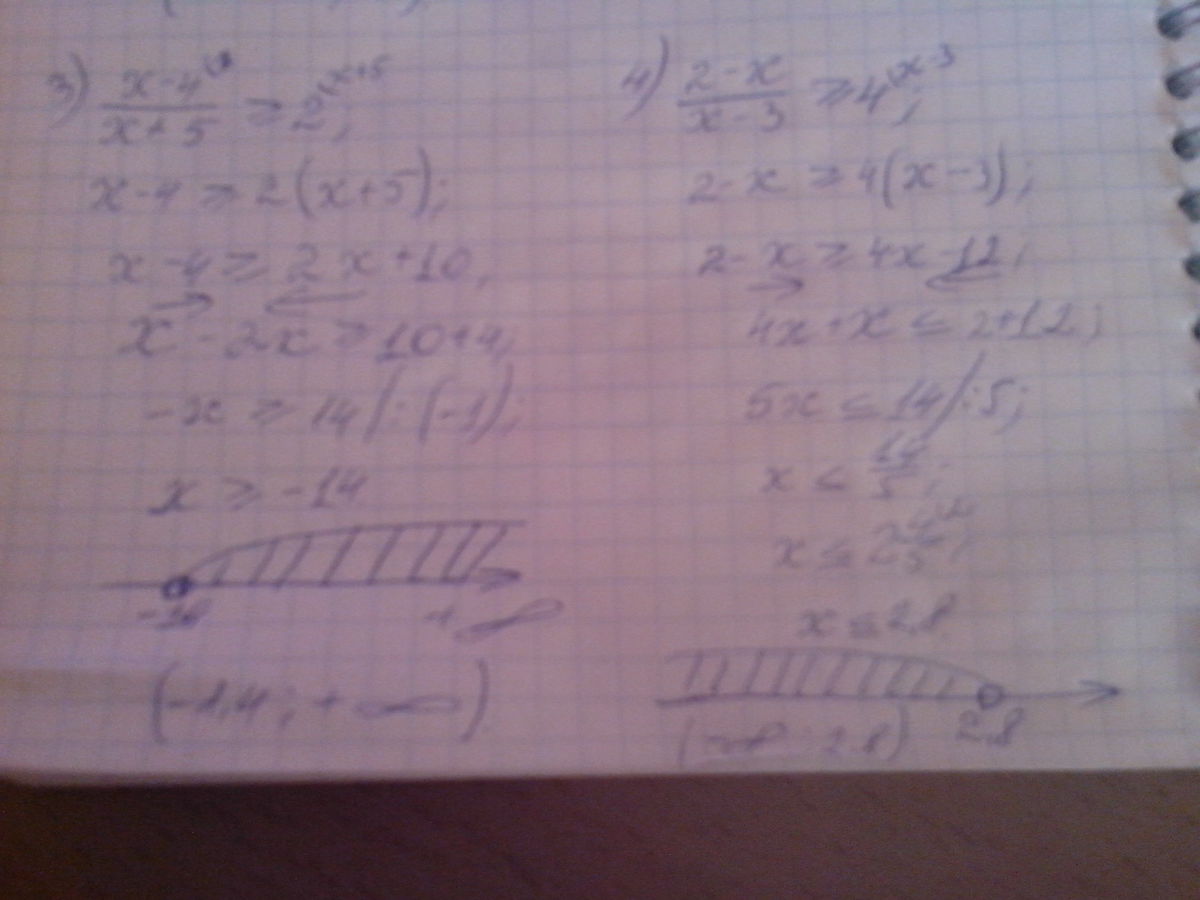 3) (x-4)/(x+5) ≥ 2^{\x+5};
x-4 ≥ 2(x+5);
x-4 ≥ 2x+10;
x-2x ≥ 10+4;
-x ≥ 14/:(-1);
x ≥ -14
-14 +∞
(-14; +∞)
4) (2-x)/(x-3) ≥ 4^{\x-3};
2-x ≥ 4(x-3);
2-x ≥ 4x-12;
4x+x ≤ 2+12;
5x ≤ 14/:5;
x ≤ 14/5;
x ≤ 2 4/5;
x ≤ 2.8
2.8
(-∞; 2.8)